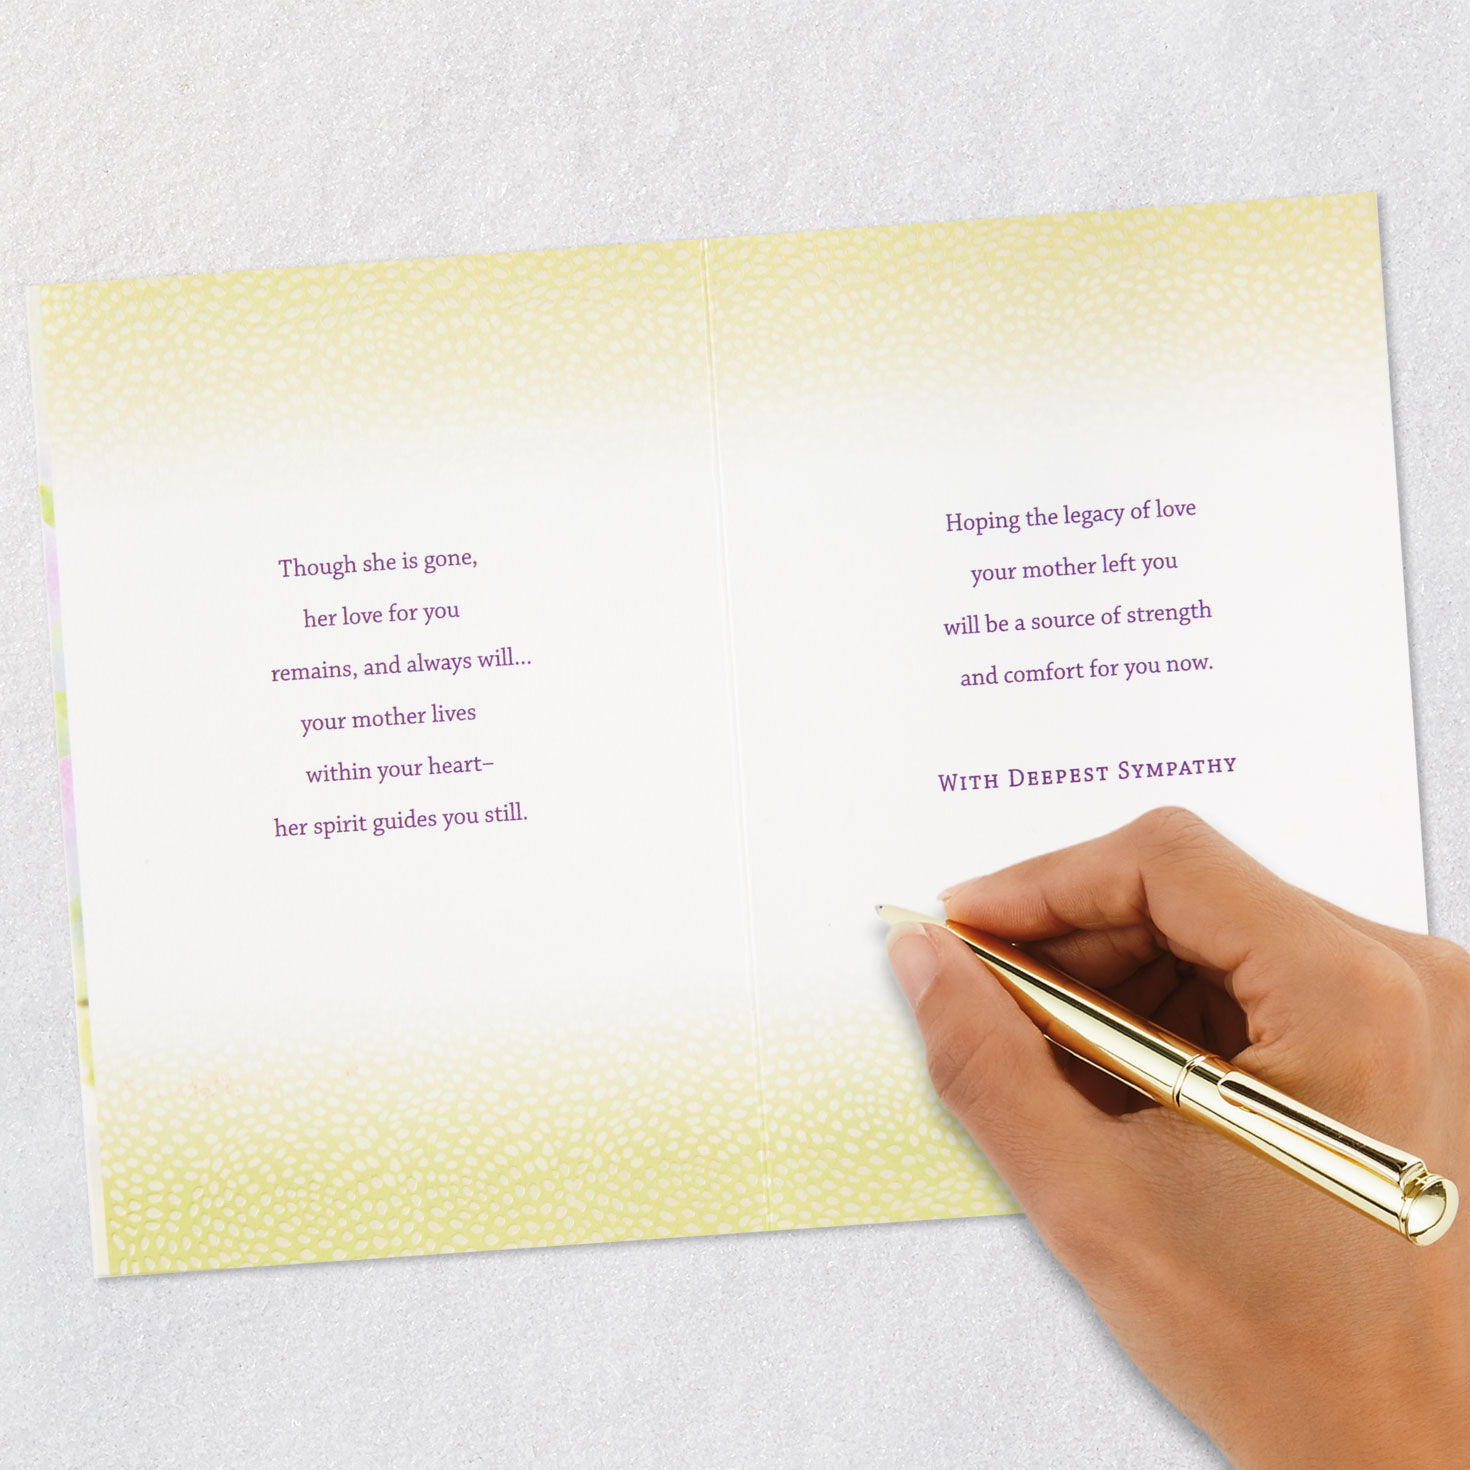 Though she is gone,
her love for you
remains, and always will...
your mother lives
within your heart–
her spirit guides you still.
Hoping the legacy of love
your mother left you
will be a source of strength
and comfort for you now.
With Deepest Sympathy